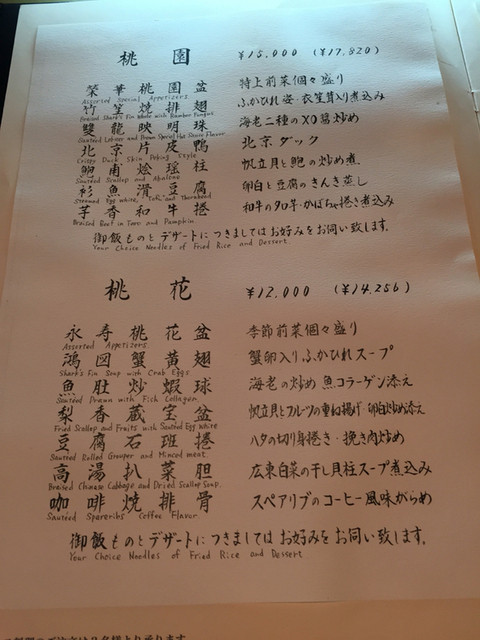 桃園 ¥15,000 (¥17,820)
榮華桃園盆 特上前菜個々盛り
Assorted Special Appetizers
竹笙燒排翅 ふかひれ姿・衣笠茸入り煮込み
Braised Shark's Fin Whole with Bamboo Fungus
雙龍映明珠 海老二種のXO醤炒め
Sauteed Lobster and Prawn Special Hot Sauce Flavor
北京片皮鴨 北京ダック
Crispy Duck Skin Peking Style
鮑甫燴瑶柱 帆立貝と鮑の炒め煮
Sauteed Scallop and Abalone
衫魚滑豆腐 卵白と豆腐のきんき蒸し
Steamed Egg white, Tofu and Thornhead
芋香和牛捲 和牛のタロ芋・かぼちゃ捲き煮込み
Braised Beef in Taro and Pumpkin
御飯ものとデザートにつきましてはお好みをお伺い致します。
Your Choice Noodles of Fried Rice and Dessert
桃花 ¥12,000 (¥14,256)
永寿桃花盆 季節前菜個々盛り
Assorted Appetizers
鴻図蟹黄翅 蟹卵入りふかひれスープ
Shark's Fin Soup with Crab Eggs
魚肚炒蝦球 海老の炒め 魚コラーゲン添え
Sauteed Prawn with Fish Collagen
梨香蔵宝盆 帆立貝とフルーツの重ね揚げ 卵白炒め添え
Fried Scallop and Fruits with Sauteed Egg White
豆腐石班捲 ハタの切り身捲き・挽き肉炒め
Sauteed Rolled Grouper and Minced meat
高湯扒菜胆 広東白菜の干し貝柱スープ煮込み
Braised Chinese Cabbage and Dried Scallop Soup
咖啡燒排骨 スペアリブのコーヒー風味がらめ
Sauteed Spareribs Coffee Flavor
御飯ものとデザートにつきましてはお好みをお伺い致します。
Your Choice Noodles of Fried Rice and Dessert